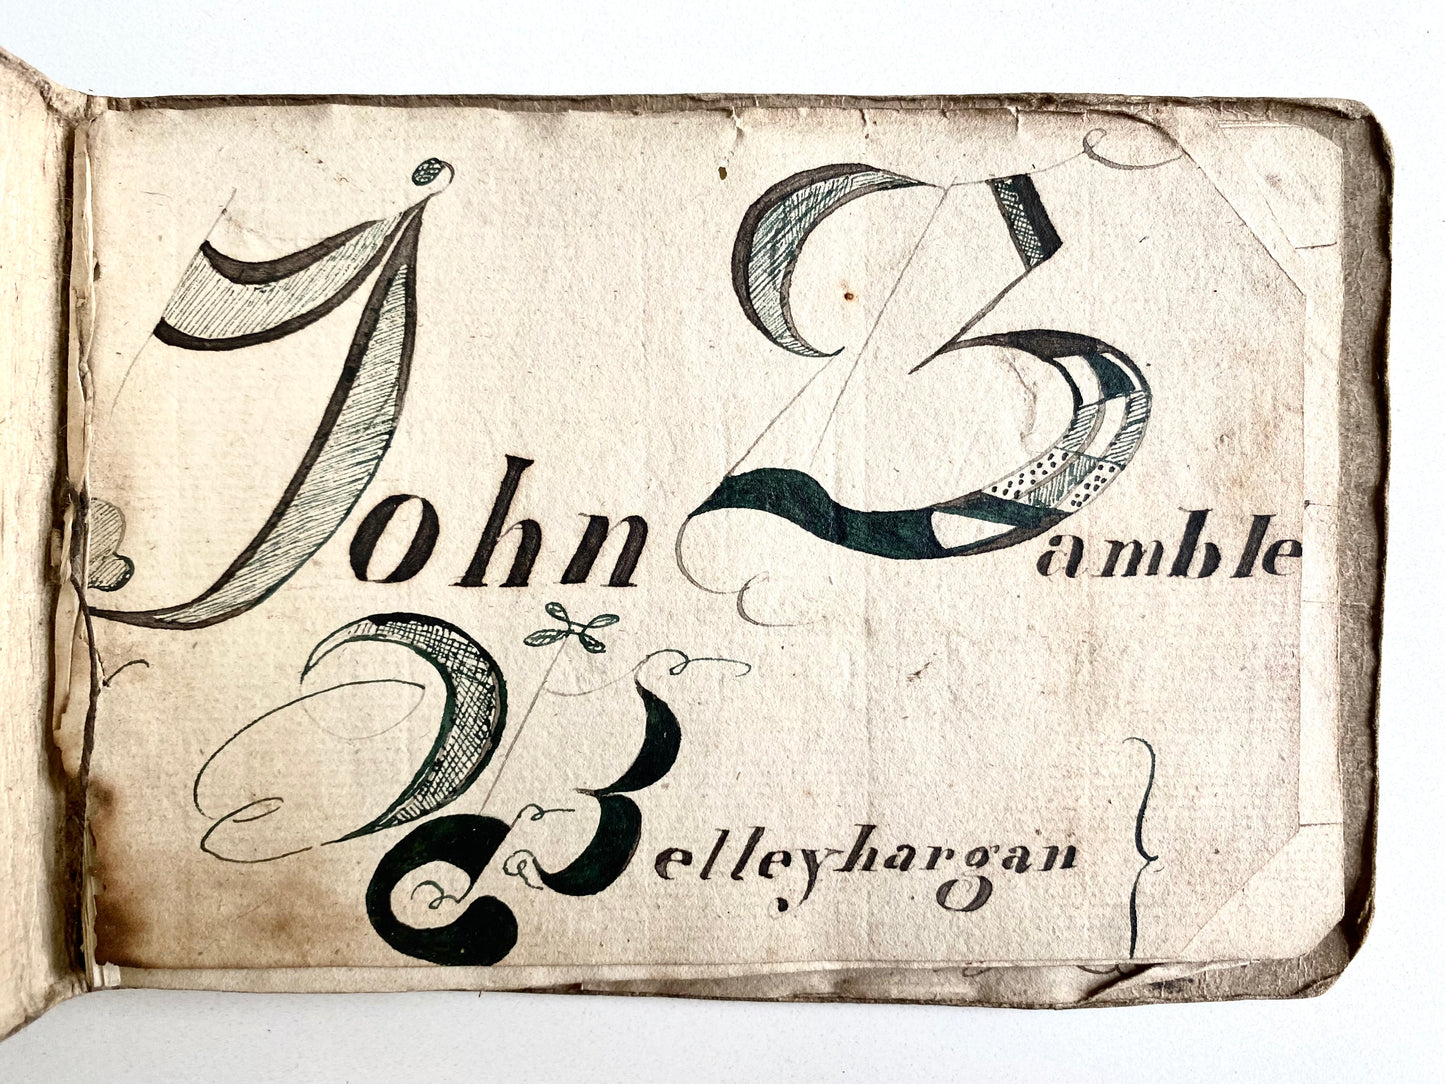 John Bamble
Belleyhargan